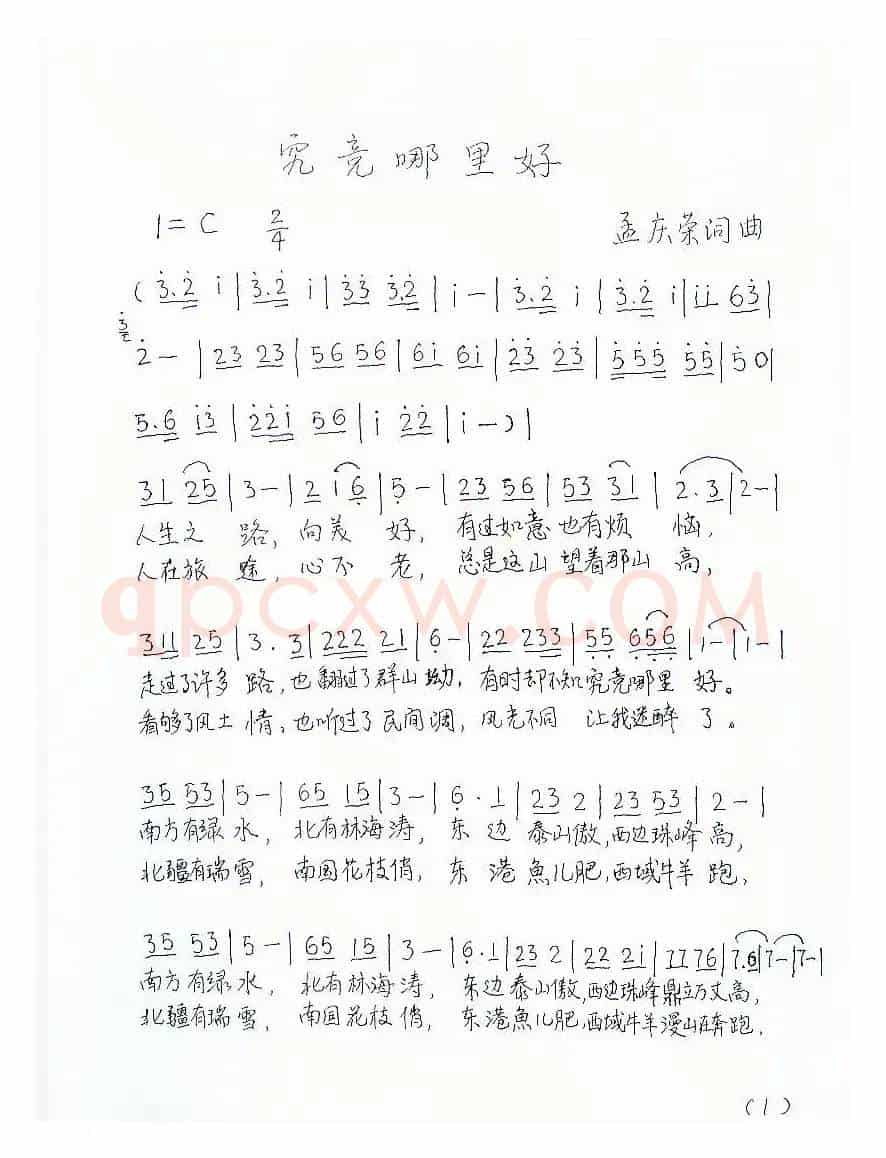 究竟哪里好
1=C 2/4 孟庆荣词曲
(3.2 i|3.2 i|33 3.2|i-|3.2 i|3.2 i|ii 63|
3 2-|23 23|56 56|6i 6i|23 23|555 55|50|
5.6 i3|22i 56|i 22|i-)|
31 25|3-|2 16|5-|23 56|53 31|2.3|2-|
人生之路,向美好,有过如意也有烦恼,
人在旅途,心不老,总是这山望着那山高,
qpcxw.com
311 25|3.3|222 21|6-|22 233|55 656|1-|1-|
走过了许多路,也翻过了群山坳,有时却不知究竟哪里好。
看够了风土情,也听过了民间调,风光不同让我迷醉了。
35 53|5-|65 15|3-|6.1|23 2|23 53|2-|
南方有绿水,北有林海涛,东边泰山傲,西边珠峰高,
北疆有瑞雪,南国花枝俏,东港魚儿肥,西域牛羊跑,
35 53|5-|65 15|3-|6.1|23 2|22 21|77 76|7.6|7-|7-|
南方有绿水,北有林海涛,东边泰山傲,西边珠峰鼎立万丈高,
北疆有瑞雪,南国花枝俏,东港魚儿肥,西域牛羊漫山在奔跑.
(1)